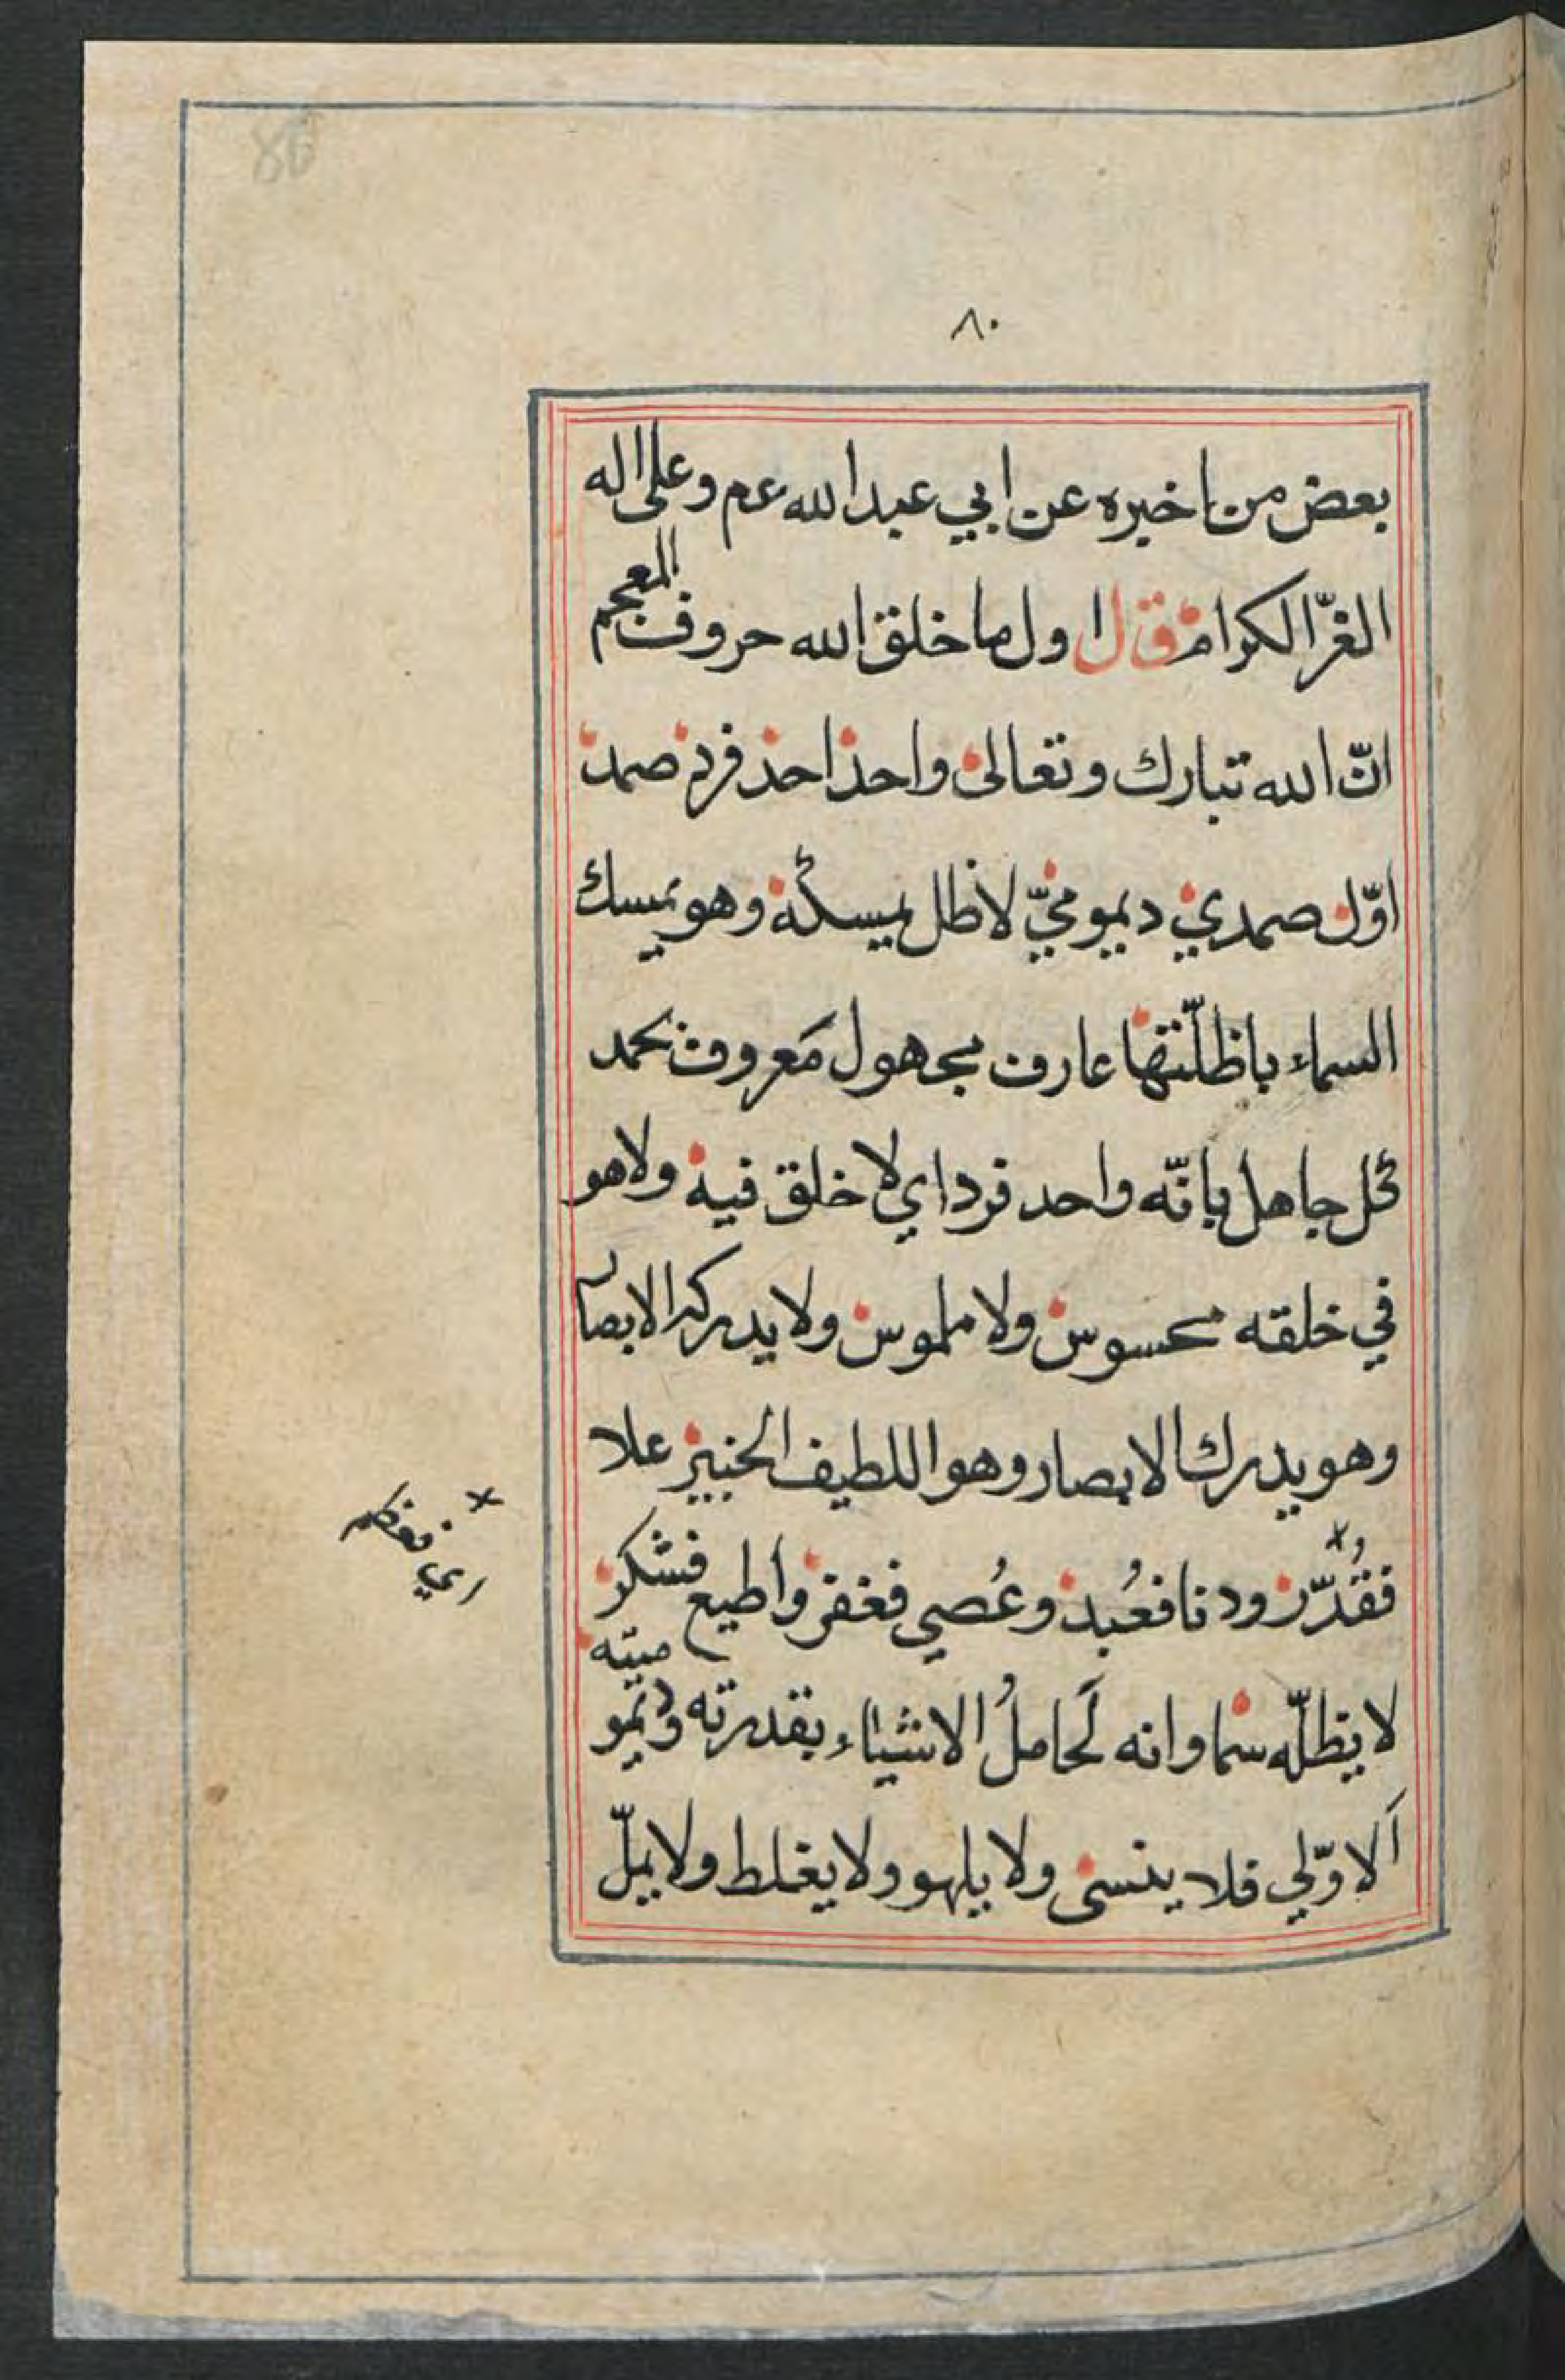 ٨٠
بعض من اخبره عن ابي عبد الله عم وعلى اله
الغرّ الكرام قال اول ما خلق الله حروف المعجم
انّ الله تبارك وتعالى واحد احد فرد صمد
اوّل صمدي ديموميّ لا ظل يمسكه وهو يمسك
السماء باظلّتها عارف بمجهول مَعروف بحمد
كل جاهل بانّه واحد فرداي لا خلق فيه ولا هو
في خلقه محسوس ولا ملموس ولا يدركه الابصار
وهو يدرك الابصار وهو اللطيف الخبير علا
فقُدّر ودنا فعُبد وعُصي فغفر واطيع فشكر
لا يظلّه سما وانه لَحاملُ الاشياء بقدرته وديموميته
اَلاوّلي فلا ينسى ولا يلهو ولا يغلط ولا يملّ